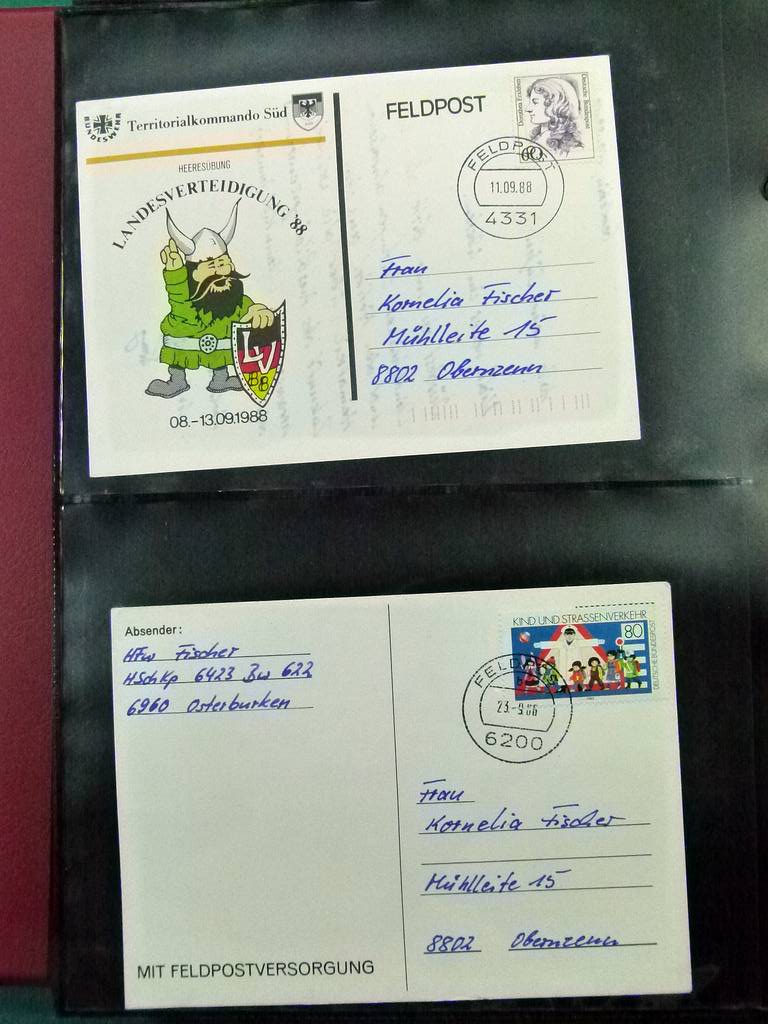 BUNDESWEHR
Territorialkommando Süd
HEERESÜBUNG
LANDESVERTEIDIGUNG '88
LV
88
08.-13.09.1988
FELDPOST
Dorothea Erxleben
Deutsche Bundespost
60
FELDPOST
11.09.88
4331
Frau
Kornelia Fischer
Mühlleite 15
8802 Obernzenn
Absender:
HFw Fischer
HSchKp 6423 Bw 622
6960 Osterburken
MIT FELDPOSTVERSORGUNG
KIND UND STRASSENVERKEHR
80
DEUTSCHE BUNDESPOST
FELDPOST
23-9.86
6200
Frau
Kornelia Fischer
Mühlleite 15
8802 Obernzenn